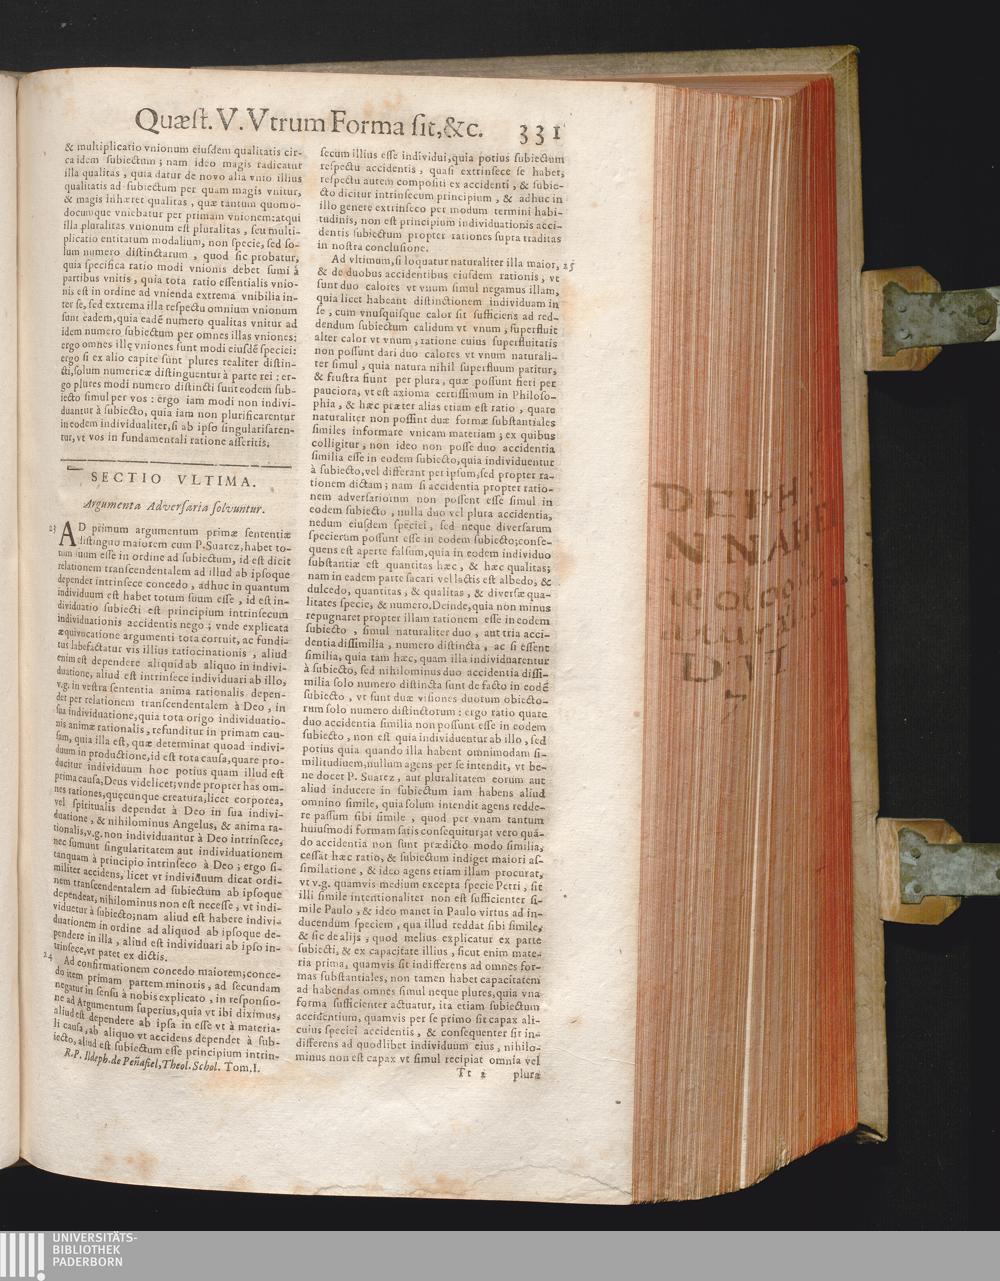 Quæst. V. Vtrum Forma sit, &c. 331
& multiplicatio vnionum eiusdem qualitatis cir-
ca idem subiectum; nam ideo magis radicatur
illa qualitas, quia datur de novo alia vnio illius
qualitatis ad subiectum per quam magis vnitur,
& magis inhæret qualitas, quæ tantum quomo-
documque vniebatur per primam vnionem: atqui
illa pluralitas vnionum est pluralitas, seu multi-
plicatio entitatum modalium, non specie, sed so-
lum numero distinctarum, quod sic probatur,
quia specifica ratio modi vnionis debet sumi à
partibus vnitis, quia tota ratio essentialis vnio-
nis est in ordine ad vnienda extrema vnibilia in-
ter se, sed extrema illa respectu omnium vnionum
sunt eadem, quia eadē numero qualitas vnitur ad
idem numero subiectum per omnes illas vniones:
ergo omnes illę vniones sunt modi eiusdē speciei:
ergo si ex alio capite sunt plures realiter distin-
cti, solum numericæ distinguentur à parte rei: er-
go plures modi numero distincti sunt eodem sub-
iecto simul per vos: ergo iam modi non indivi-
duantur à subiecto, quia iam non plurificarentur
in eodem individualiter, si ab ipso singularisaren-
tur, vt vos in fundamentali ratione asseritis.
SECTIO VLTIMA.
Argumenta Adversaria solvuntur.
23 AD primum argumentum primæ sententiæ
distinguo maiorem cum P. Suarez, habet to-
tum suum esse in ordine ad subiectum, id est dicit
relationem transcendentalem ad illud ab ipsoque
dependet intrinsece concedo, adhuc in quantum
individuum est habet totum suum esse, id est in-
dividuatio subiecti est principium intrinsecum
individuationis accidentis nego; vnde explicata
æquivocatione argumenti tota corruit, ac fundi-
tus labefactatur vis illius ratiocinationis, aliud
enim est dependere aliquid ab aliquo in indivi-
duatione, aliud est intrinsece individuari ab illo,
v.g. in vestra sententia anima rationalis depen-
det per relationem transcendentalem à Deo, in
sua individuatione, quia tota origo individuatio-
nis animæ rationalis, refunditur in primam cau-
sam, quia illa est, quæ determinat quoad indivi-
duum in productione, id est tota causa, quare pro-
ducitur individuum hoc potius quam illud est
prima causa, Deus videlicet; vnde propter has om-
nes rationes, quęcunque creatura, licet corporea,
vel spiritualis dependet à Deo in sua indivi-
duatione, & nihilominus Angelus, & anima ra-
tionalis, v.g. non individuantur à Deo intrinsece,
nec sumunt singularitatem aut individuationem
tanquam à principio intrinseco à Deo; ergo si-
militer accidens, licet vt individuum dicat ordi-
nem transcendentalem ad subiectum ab ipsoque
dependeat, nihilominus non est necesse, vt indi-
viduetur à subiecto; nam aliud est habere indivi-
duationem in ordine ad aliquod ab ipsoque de-
pendere in illa, aliud est individuari ab ipso in-
trinsece, vt patet ex dictis.
24 Ad confirmationem concedo maiorem; conce-
do item primam partem minoris, ad secundam
negatur in sensu à nobis explicato, in responsio-
ne ad Argumentum superius, quia vt ibi diximus,
aliud est dependere ab ipsa in esse vt à materia-
li causa, ab aliquo vt accidens dependet à sub-
iecto, aliud est subiectum esse principium intrin-
R.P. Ildeph. de Peñafiel, Theol. Schol. Tom. I.
secum illius esse individui, quia potius subiectum
respectu accidentis, quasi extrinsece se habet,
respectu autem compositi ex accidenti, & subie-
cto dicitur intrinsecum principium, & adhuc in
illo genere extrinseco per modum termini habi-
tudinis, non est principium individuationis acci-
dentis subiectum propter rationes supra traditas
in nostra conclusione.
Ad vltimum, si loquatur naturaliter illa maior, 25
& de duobus accidentibus eiusdem rationis, vt
sunt duo calores vt vnum simul negamus illam,
quia licet habeant distinctionem individuam in
se, cum vnusquisque calor sit sufficiens ad red-
dendum subiectum calidum vt vnum, superfluit
alter calor vt vnum, ratione cuius superfluitatis
non possunt dari duo calores vt vnum naturali-
ter simul, quia natura nihil superfluum patitur,
& frustra fiunt per plura, quæ possunt fieri per
pauciora, vt est axioma certissimum in Philoso-
phia, & hæc præter alias etiam est ratio, quare
naturaliter non possint duæ formæ substantiales
similes informare vnicam materiam; ex quibus
colligitur, non ideo non posse duo accidentia
similia esse in eodem subiecto, quia individuentur
à subiecto, vel differant per ipsum, sed propter ra-
tionem dictam; nam si accidentia propter ratio-
nem adversariorum non possent esse simul in
eodem subiecto, nulla duo vel plura accidentia,
nedum eiusdem speciei, sed neque diversarum
specierum possunt esse in eodem subiecto; conse-
quens est aperte falsum, quia in eodem individuo
substantiæ est quantitas hæc, & hæc qualitas;
nam in eadem parte sacari vel lactis est albedo, &
dulcedo, quantitas, & qualitas, & diversæ qua-
litates specie, & numero. Deinde, quia non minus
repugnaret propter illam rationem esse in eodem
subiecto, simul naturaliter duo, aut tria acci-
dentia dissimilia, numero distincta, ac si essent
similia, quia tam hæc, quam illa individuarentur
à subiecto, sed nihilominus duo accidentia dissi-
milia solo numero distincta sunt de facto in eodē
subiecto, vt sunt duæ visiones duorum obiecto-
rum solo numero distinctorum: ergo ratio quare
duo accidentia similia non possunt esse in eodem
subiecto, non est quia individuentur ab illo, sed
potius quia quando illa habent omnimodam si-
militudinem, nullum agens per se intendit, vt be-
ne docet P. Suarez, aut pluralitatem eorum aut
aliud inducere in subiectum iam habens aliud
omnino simile, quia solum intendit agens redde-
re passum sibi simile, quod per vnam tantum
huiusmodi formam satis consequitur; at vero quā-
do accidentia non sunt prædicto modo similia,
cessat hæc ratio, & subiectum indiget maiori as-
similatione, & ideo agens etiam illam procurat,
vt v.g. quamvis medium excepta specie Petri, sit
illi simile intentionaliter non est sufficienter si-
mile Paulo, & ideo manet in Paulo virtus ad in-
ducendum speciem, qua illud reddat sibi simile,
& sic de alijs, quod melius explicatur ex parte
subiecti, & ex capacitate illius, sicut enim mate-
ria prima, quamvis sit indifferens ad omnes for-
mas substantiales, non tamen habet capacitatem
ad habendas omnes simul neque plures, quia vna
forma sufficienter actuatur, ita etiam subiectum
accidentium, quamvis per se primo sit capax ali-
cuius speciei accidentis, & consequenter sit in-
differens ad quodlibet individuum eius, nihilo-
minus non est capax vt simul recipiat omnia vel
Tt 2 plura
UNIVERSITÄTS-
BIBLIOTHEK
PADERBORN